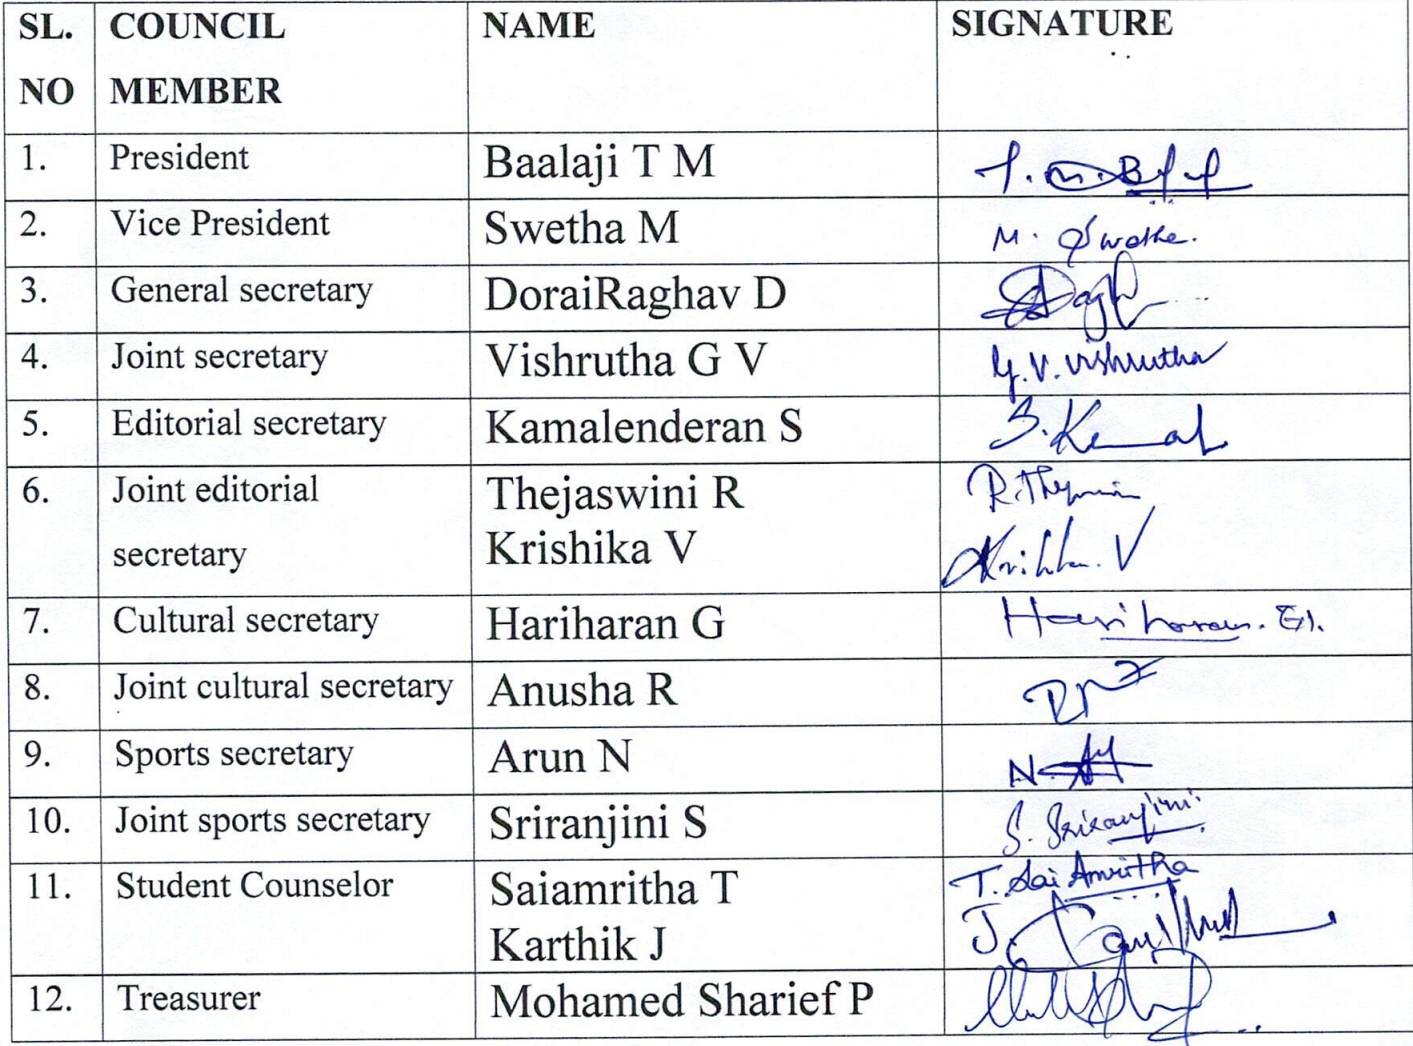 SL. COUNCIL NAME SIGNATURE
NO MEMBER
1. President Baalaji T M
2. Vice President Swetha M M. Swetha.
3. General secretary DoraiRaghav D
4. Joint secretary Vishrutha G V G.V. Vishrutha
5. Editorial secretary Kamalenderan S S. Kamal
6. Joint editorial Thejaswini R
secretary Krishika V
7. Cultural secretary Hariharan G Hariharan. G.
8. Joint cultural secretary Anusha R
9. Sports secretary Arun N
10. Joint sports secretary Sriranjini S S. Sriranjini
11. Student Counselor Saiamritha T T. Sai Amritha
Karthik J
12. Treasurer Mohamed Sharief P